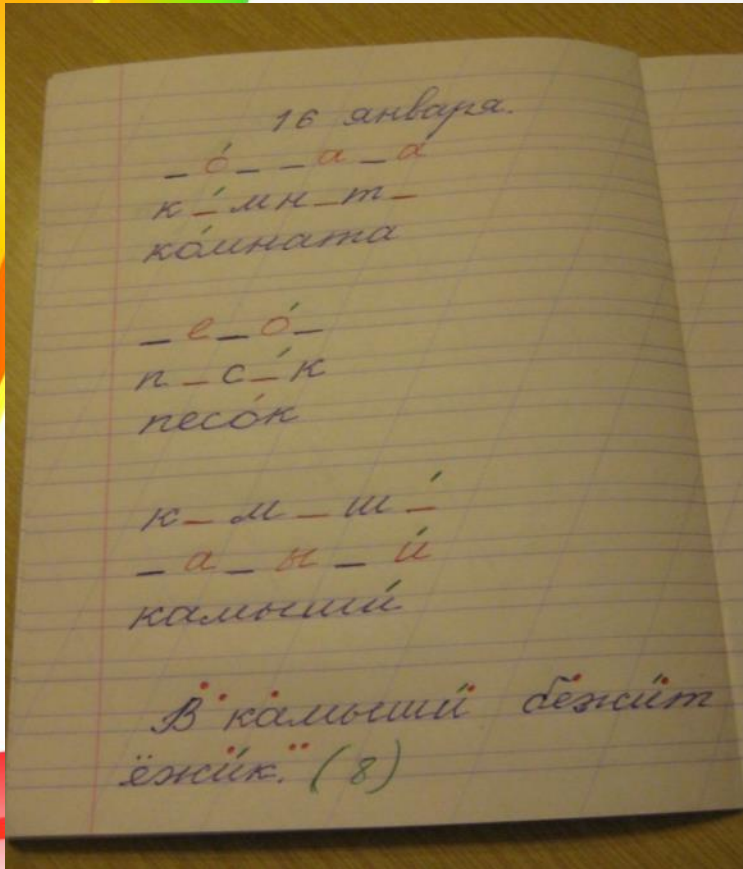 16 января.
_ о́ _ _ а _ а́
к _́ мн _ т _
ко́мната
_ е _ о́ _
п _ с _́ к
песо́к
к _ м _ ш _́
_ а _ ы _ и́
камыши́
В камыши бежит
ёжик. (8)